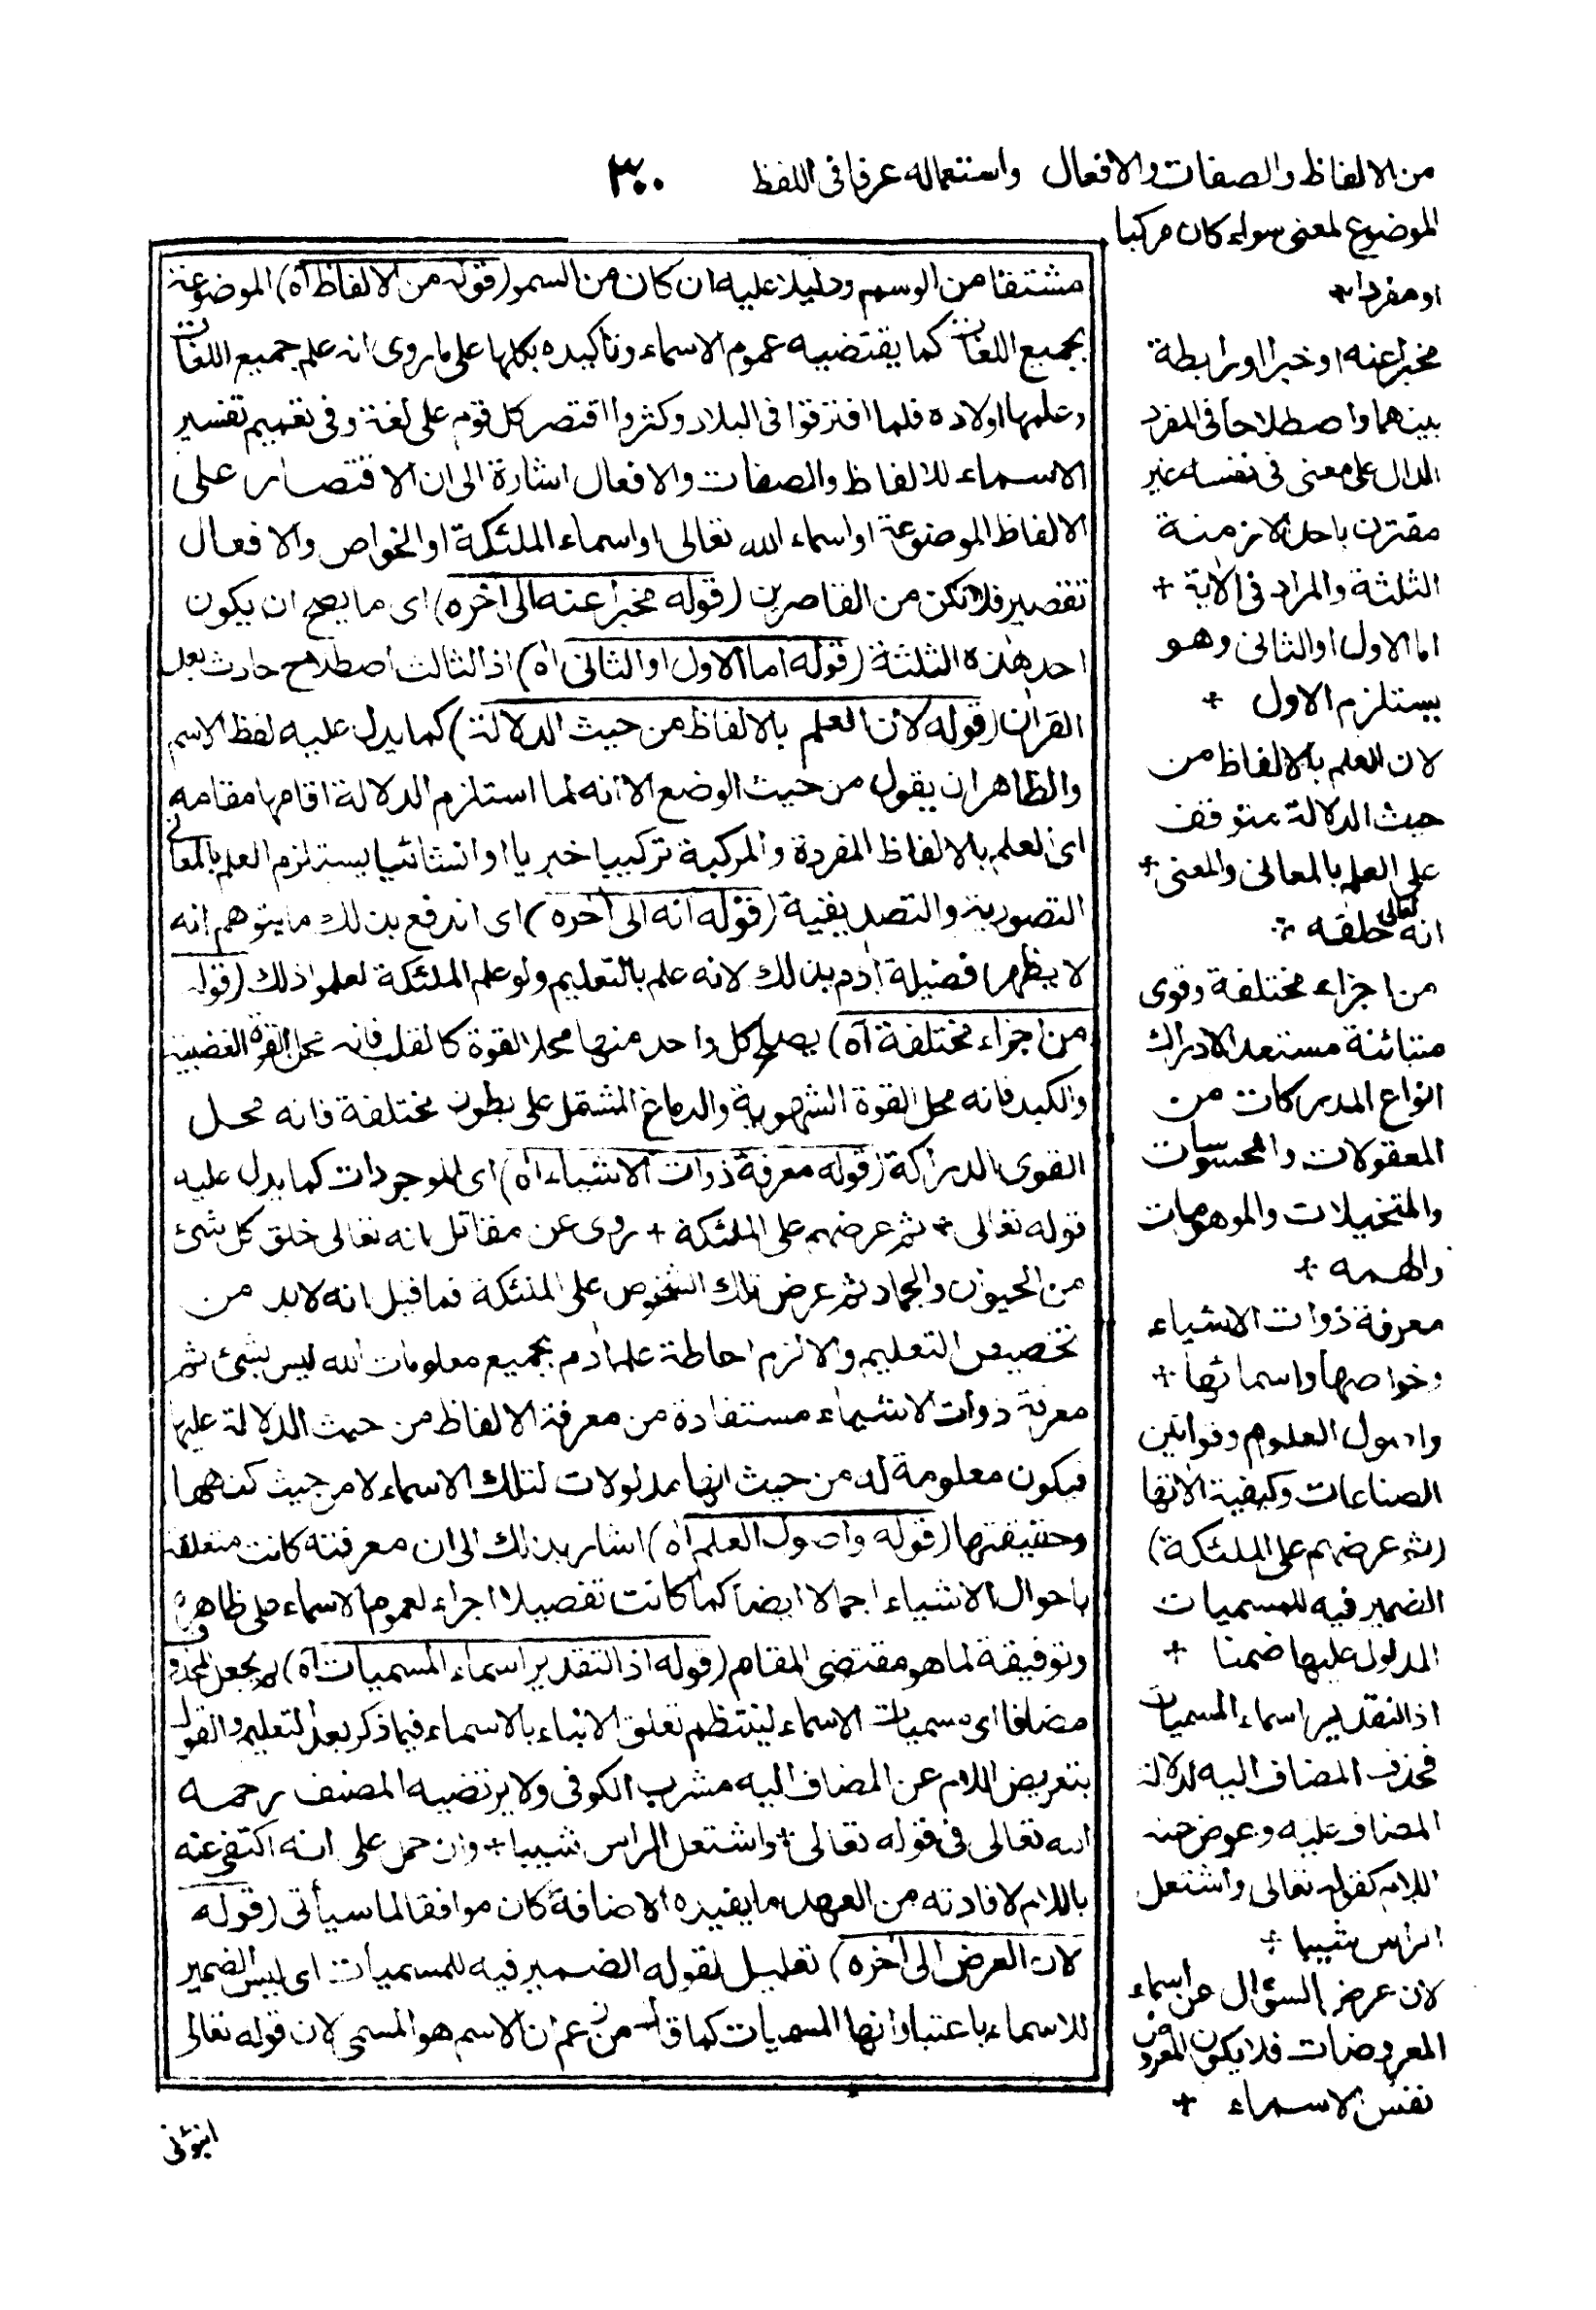 من الالفاظ والصفات والافعال واستعماله عرفا فى اللفظ
٣٠٠
الموضوع لمعنى سواء كان مركبا
او مفردا +
مخبرا عنه او خبرا او رابطة
بينهما واصطلاحا فى المفرد
الدال على معنى فى نفسه غير
مقترن باحد الازمنة
الثلثة والمراد فى الآية +
اما الاول او الثانى وهو
يستلزم الاول +
لان العلم بالالفاظ من
حيث الدلالة متوقف
على العلم بالمعانى والمعنى +
انه تعالى خلقه +
من اجزاء مختلفة وقوى
متبائنة مستعد الادراك
انواع المدركات من
المعقولات والمحسوسات
والمتخيلات والموهومات
والهمه +
معرفة ذوات الاشياء
وخواصها واسمائها +
واصول العلوم وقوانين
الصناعات وكيفية الاتها
(ثم عرضهم على الملئكة)
الضمير فيه للمسميات
المدلول عليها ضمنا +
اذ التقدير اسماء المسميات
فحذف المضاف اليه لدلالة
المضاف عليه وعوض عنه
اللام كقوله تعالى واشتعل
الراس شيبا +
لان عرض السؤال عن اسماء
المعروضات فلا يكون المعروض
نفس الاسماء +
مشتقا من الوسم ودليلا عليه ان كان من السمو (قوله من الالفاظ آه) الموضوعة
بجميع اللغات كما يقتضيه عموم الاسماء وتاكيده بكلها على ما روى انه علم جميع اللغات
وعلمها اولاده فلما افترقوا فى البلاد وكثروا اقتصر كل قوم على لغة وفى تعميم تفسير
الاسماء للالفاظ والصفات والافعال اشارة الى ان الاقتصار على
الالفاظ الموضوعة او اسماء الله تعالى او اسماء الملئكة او الخواص والافعال
تقصير فلا تكن من القاصرين (قوله مخبرا عنه الى آخره) اى ما يصح ان يكون
احد هذه الثلثة (قوله اما الاول او الثانى آه) اذ الثالث اصطلاح حادث بعد
القران (قوله لان العلم بالالفاظ من حيث الدلالة) كما يدل عليه لفظ الاسم
والظاهر ان يقول من حيث الوضع الا انه لما استلزم الدلالة اقامها مقامه
اى العلم بالالفاظ المفردة والمركبة تركيبا خبريا او انشائيا يستلزم العلم بالمعانى
التصورية والتصديقية (قوله انه الى آخره) اى اندفع بذلك ما يتوهم انه
لا يظهر فضيلة آدم بذلك لانه علم بالتعليم ولو علم الملئكة لعلموا ذلك (قوله
من اجزاء مختلفة آه) يصلح كل واحد منها محلا لقوة كالقلب فانه محل القوة الغضبية
والكبد فانه محل القوة الشهوية والدماغ المشتمل على بطون مختلفة فانه محل
القوى الدراكة (قوله معرفة ذوات الاشياء آه) اى الموجودات كما يدل عليه
قوله تعالى + ثم عرضهم على الملئكة + روى عن مقاتل انه تعالى خلق كل شئ
من الحيوان والجماد ثم عرض تلك الشخوص على الملئكة فما قيل انه لابد من
تخصيص التعليم والا لزم احاطة علم ادم بجميع معلومات الله ليس بشئ ثم
معرفة ذوات الاشياء مستفادة من معرفة الالفاظ من حيث الدلالة عليها
فيكون معلومة له من حيث انها مدلولات لتلك الاسماء لا من حيث كنهها
وحقيقتها (قوله واصول العلم آه) اشار بذلك الى ان معرفته كانت متعلقة
باحوال الاشياء اجمالا ايضا كما كانت تفصيلا اجراء لعموم الاسماء على ظاهره
وتوفيقة لما هو مقتضى المقام (قوله اذ التقدير اسماء المسميات آه) لم يجعل المحذوف
مضافا اى مسميات الاسماء لينتظم تعلق الانباء بالاسماء فيما ذكر بعد التعليم والقول
بتعويض اللام عن المضاف اليه مشرب الكوفى ولا يرتضيه المصنف رحمه
الله تعالى فى قوله تعالى + واشتعل الراس شيبا + وان حمل على انه اكتفى عنه
باللام لافادته من العهد ما يفيده الاضافة كان موافقا لما سيأتى (قوله
لان العرض الى آخره) تعليل لقوله الضمير فيه للمسميات اى ليس الضمير
للاسماء باعتبار انها المسميات كما قال من زعم ان الاسم هو المسمى لان قوله تعالى
انبؤنى